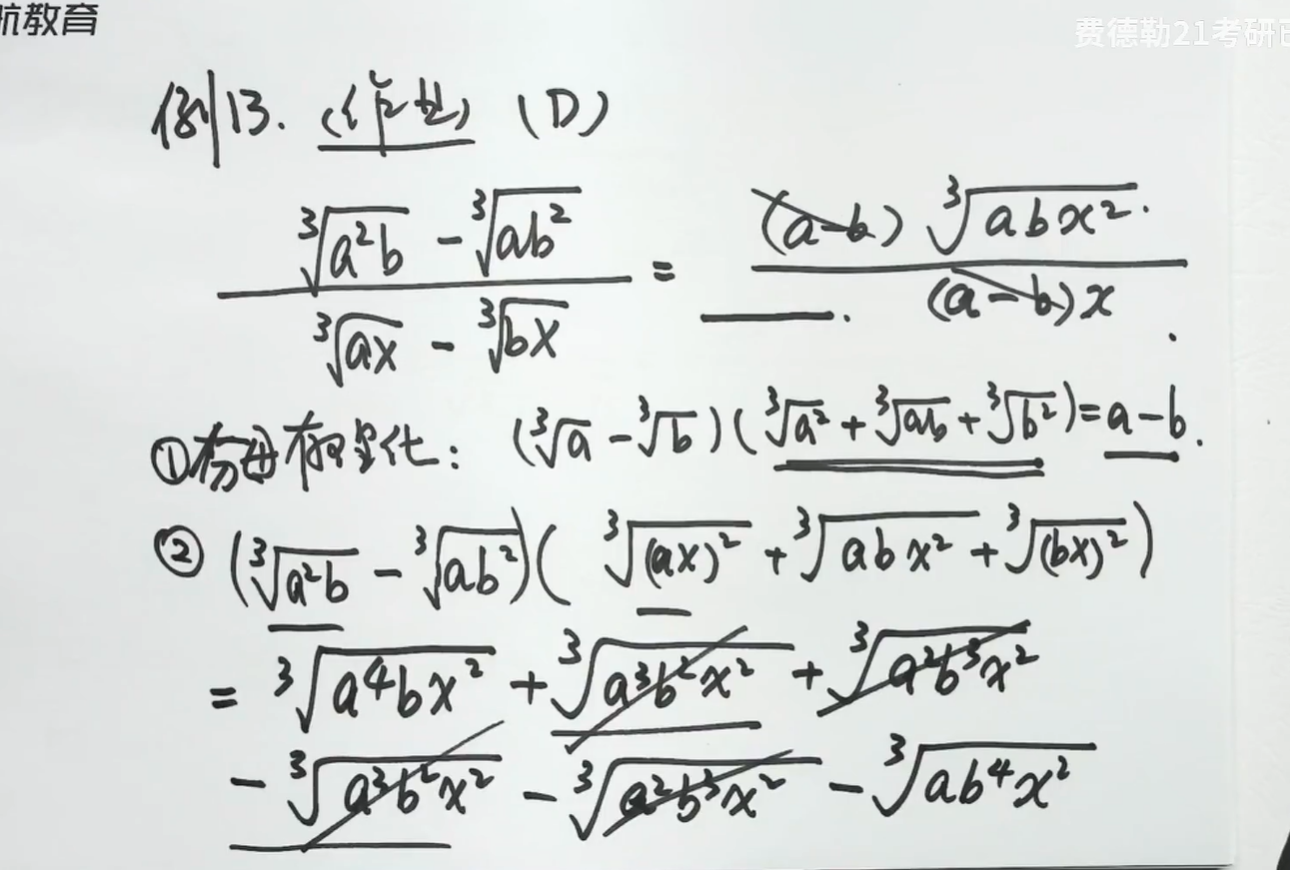 航教育
费德勒21考研已
例13. (作业) (D)
(∛(a²b) - ∛(ab²)) / (∛(ax) - ∛(bx)) = ____. ((a-b) ∛(abx²)) / ((a-b)x).
①分母有理化: (∛a - ∛b)(∛a² + ∛ab + ∛b²) = a-b.
② (∛(a²b) - ∛(ab²))(∛(ax)² + ∛(abx²) + ∛(bx)²)
= ∛(a⁴bx²) + ∛(a³b²x²) + ∛(a²b³x²)
- ∛(a³b²x²) - ∛(a²b³x²) - ∛(ab⁴x²)